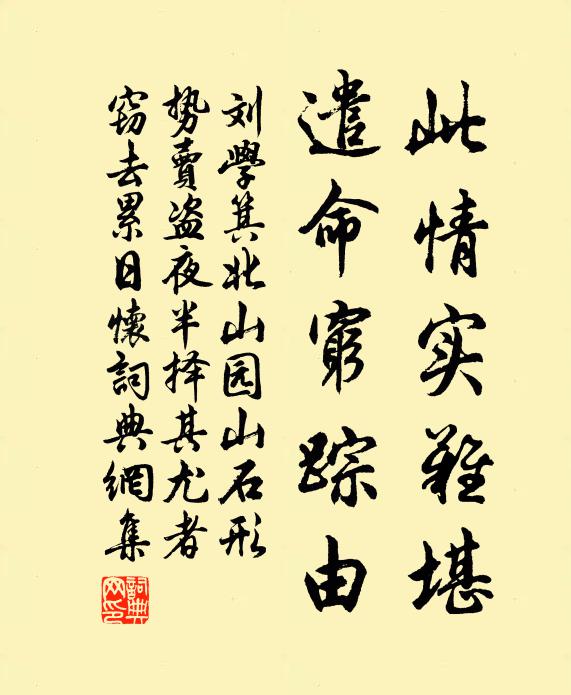 此情实难堪
遣命穷踪由
刘學箕北山园山石形
势賣盗夜半择其尤者
窃去累日懷詞典網集
詞典网印